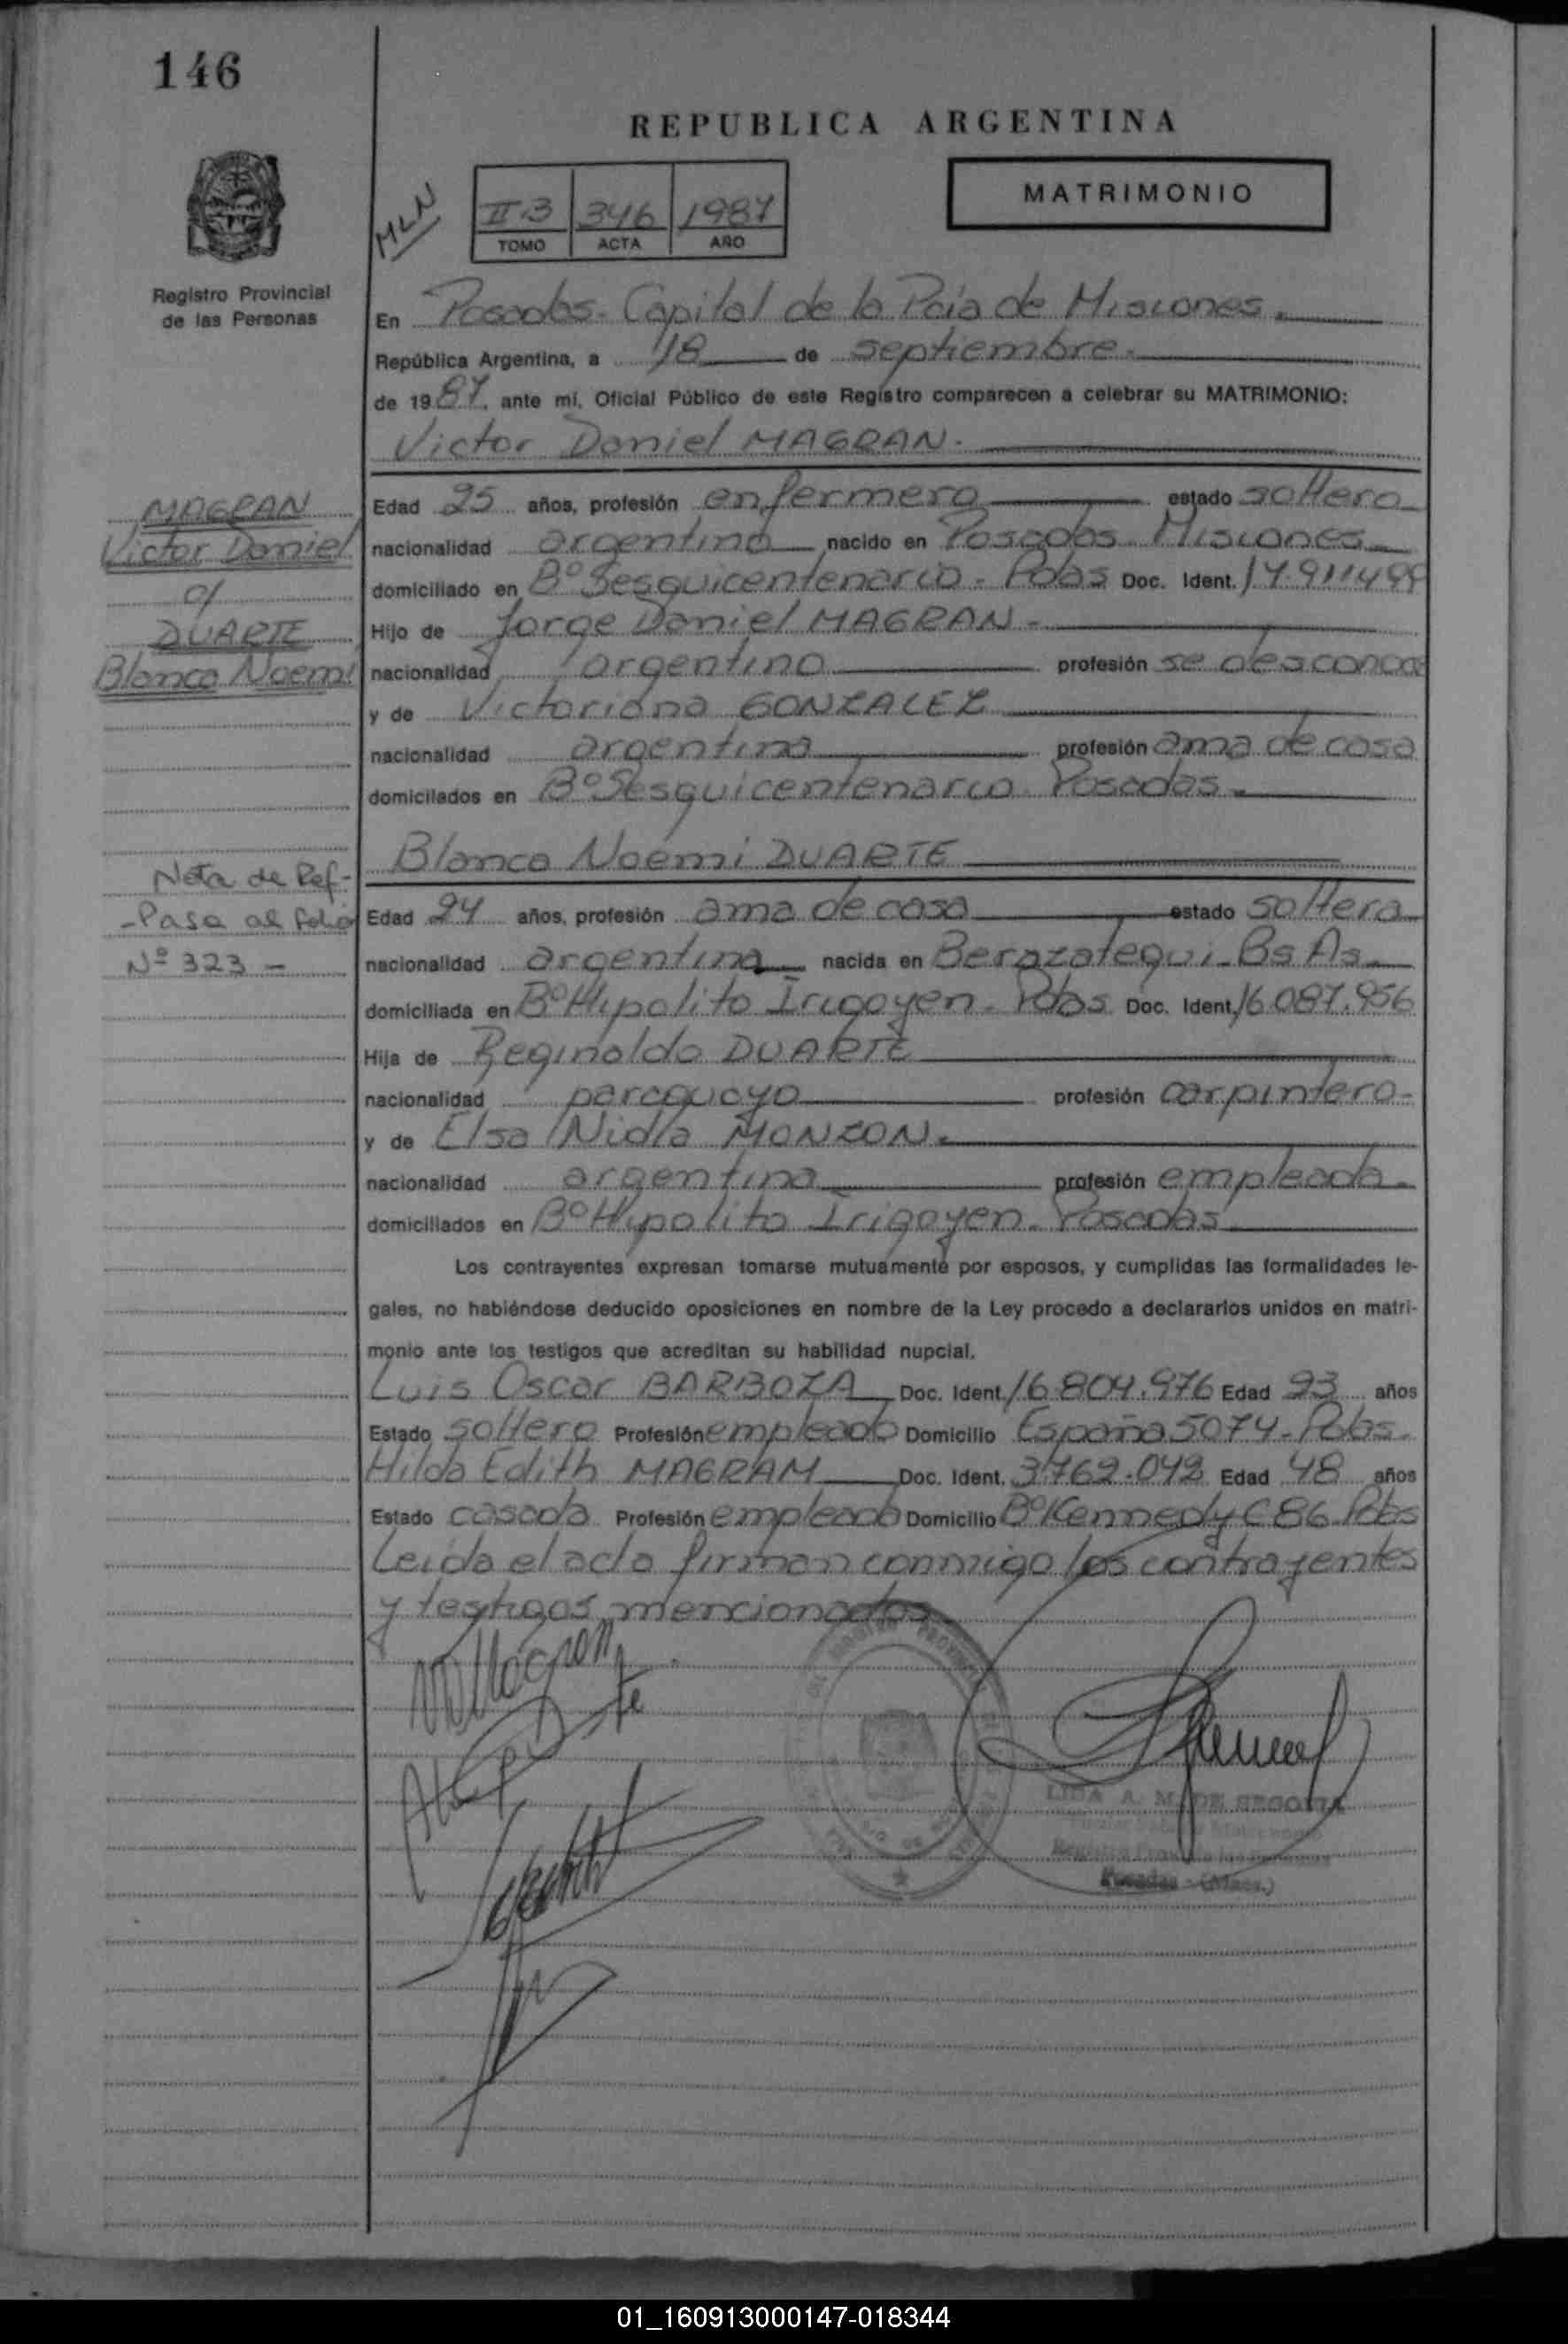 146
REPUBLICA ARGENTINA
MATRIMONIO
MLN
II-3 346 1987
TOMO ACTA AÑO
Registro Provincial
de las Personas
En Posadas. Capital de la Pcia de Misiones.
República Argentina, a 18 de septiembre.
de 1987, ante mí, Oficial Público de este Registro comparecen a celebrar su MATRIMONIO:
Victor Daniel MAGRAN.
MAGRAN
Victor Daniel
c/
DUARTE
Blanca Noemi
Edad 25 años, profesión enfermero estado soltero
nacionalidad argentino nacido en Posadas Misiones
domiciliado en Bº Sesquicentenario. Pdas Doc. Ident. 17.911499
Hijo de Jorge Daniel MAGRAN.
nacionalidad argentino profesión se desconoce
y de Victoriana GONZALEZ
nacionalidad argentina profesión ama de casa
domiciliados en Bº Sesquicentenario Posadas.
Blanca Noemi DUARTE
Nota de Ref-
-Pasa al folio
Nº 323 -
Edad 24 años, profesión ama de casa estado soltera
nacionalidad argentina nacida en Berazategui. Bs As.
domiciliada en Bº Hipolito Irigoyen. Pdas Doc. Ident. 16.087.956
Hija de Reginaldo DUARTE
nacionalidad paraguayo profesión carpintero-
y de Elsa Nidia MONZON.
nacionalidad argentina profesión empleada.
domiciliados en Bº Hipolito Irigoyen. Posadas
Los contrayentes expresan tomarse mutuamente por esposos, y cumplidas las formalidades le-
gales, no habiéndose deducido oposiciones en nombre de la Ley procedo a declararlos unidos en matri-
monio ante los testigos que acreditan su habilidad nupcial.
Luis Oscar BARBOZA Doc. Ident. 16.804.976 Edad 23 años
Estado soltero Profesión empleado Domicilio España 5074-Pdas.
Hilda Edith MAGRAM Doc. Ident. 3.762.042 Edad 48 años
Estado casada Profesión empleada Domicilio Bº Kennedy C 86 Pdas
Leida el acta firman conmigo los contrayentes
y testigos mencionados
LIDA A. M. DE SEGOVIA
Posadas - (Mnes.)
01_160913000147-018344